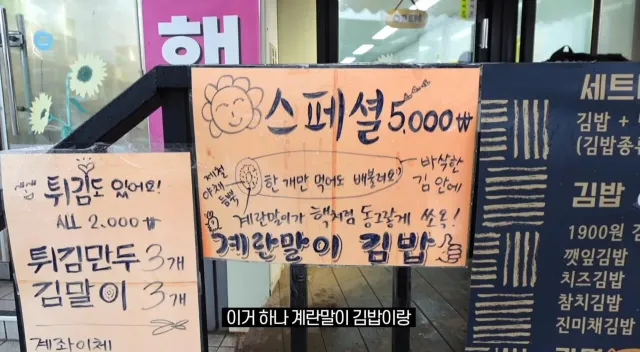 핵
스페셜 5,000₩
제철
야채
듬뿍
한 개만 먹어도 배불러요!
바삭한
김 안에
계란말이가 핵처럼 동그랗게 쏘옥!
계란말이 김밥
튀김도 있어요!
ALL 2.000₩
튀김만두 3개
김말이 3개
계좌이체
세트
김밥 +
(김밥종류
김밥
1900원
깻잎김밥
치즈김밥
참치김밥
진미채김밥
이거 하나 계란말이 김밥이랑